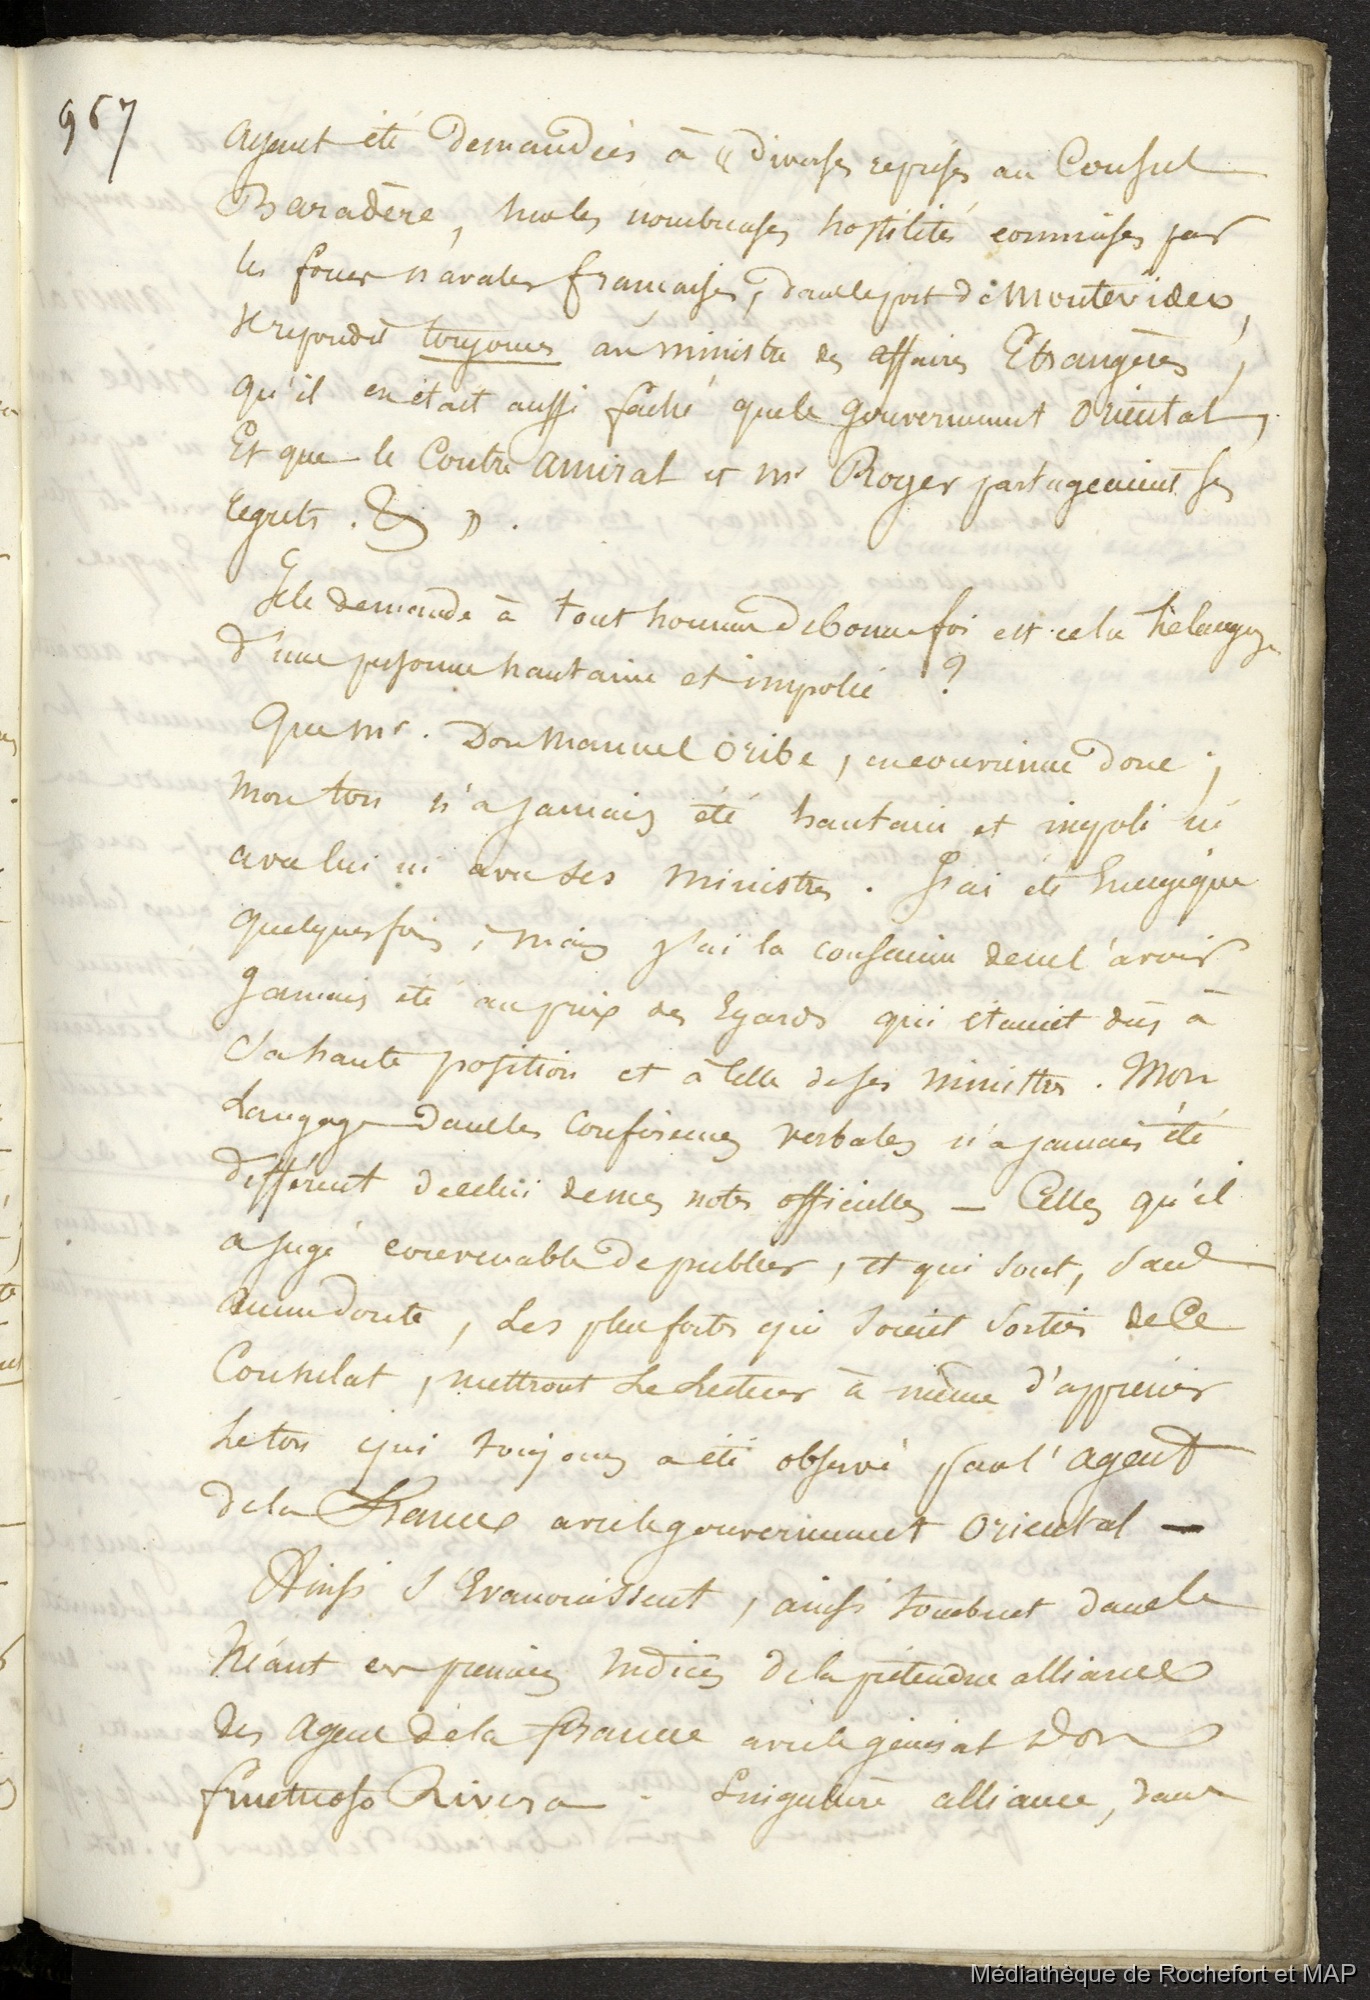 967
ayant été demandées à « diverses reprises au Consul
Baradère, sur les nombreuses hostilités commises par
les forces navales françaises, dans le port de Montevideo,
il répondit toujours au ministre des affaires Etrangères,
qu'il en était aussi fâché que le gouvernement oriental,
Et que le Contre amiral et mr Roger partageaient ses
regrets. & ».
Je le demande à tout homme de bonne foi est-cela le langage
d'une personne hautaine et impolie ?
Que mr. Don Manuel Oribe, en convienne donc ;
mon ton n'a jamais été hautain et impoli ni
avec lui ni avec ses ministres. J'ai été Energique
quelques fois, mais j'ai la conscience de ne l'avoir
jamais été au prix des Egards qui étaient dûs à
sa haute position et à Celle de ses ministres. Mon
Langage dans les Conférences verbales n'a jamais été
différent de celui de mes notes officielles — Celles qu'il
a jugé convenable de publier, et qui sont, sans
aucun doute, Les plus fortes qui soient sorties de Ce
Consulat, mettront Le Lecteur à même d'apprécier
Le ton qui toujours a été observé par l'agent
de la France avec le gouvernement oriental —
Ainsi s'Evanouissent, ainsi tombent dans le
Néant ces premiers indices de la prétendue alliance
des agens de la France avec le général Don
fructuoso Rivera. Singulière alliance, dans
Médiathèque de Rochefort et MAP